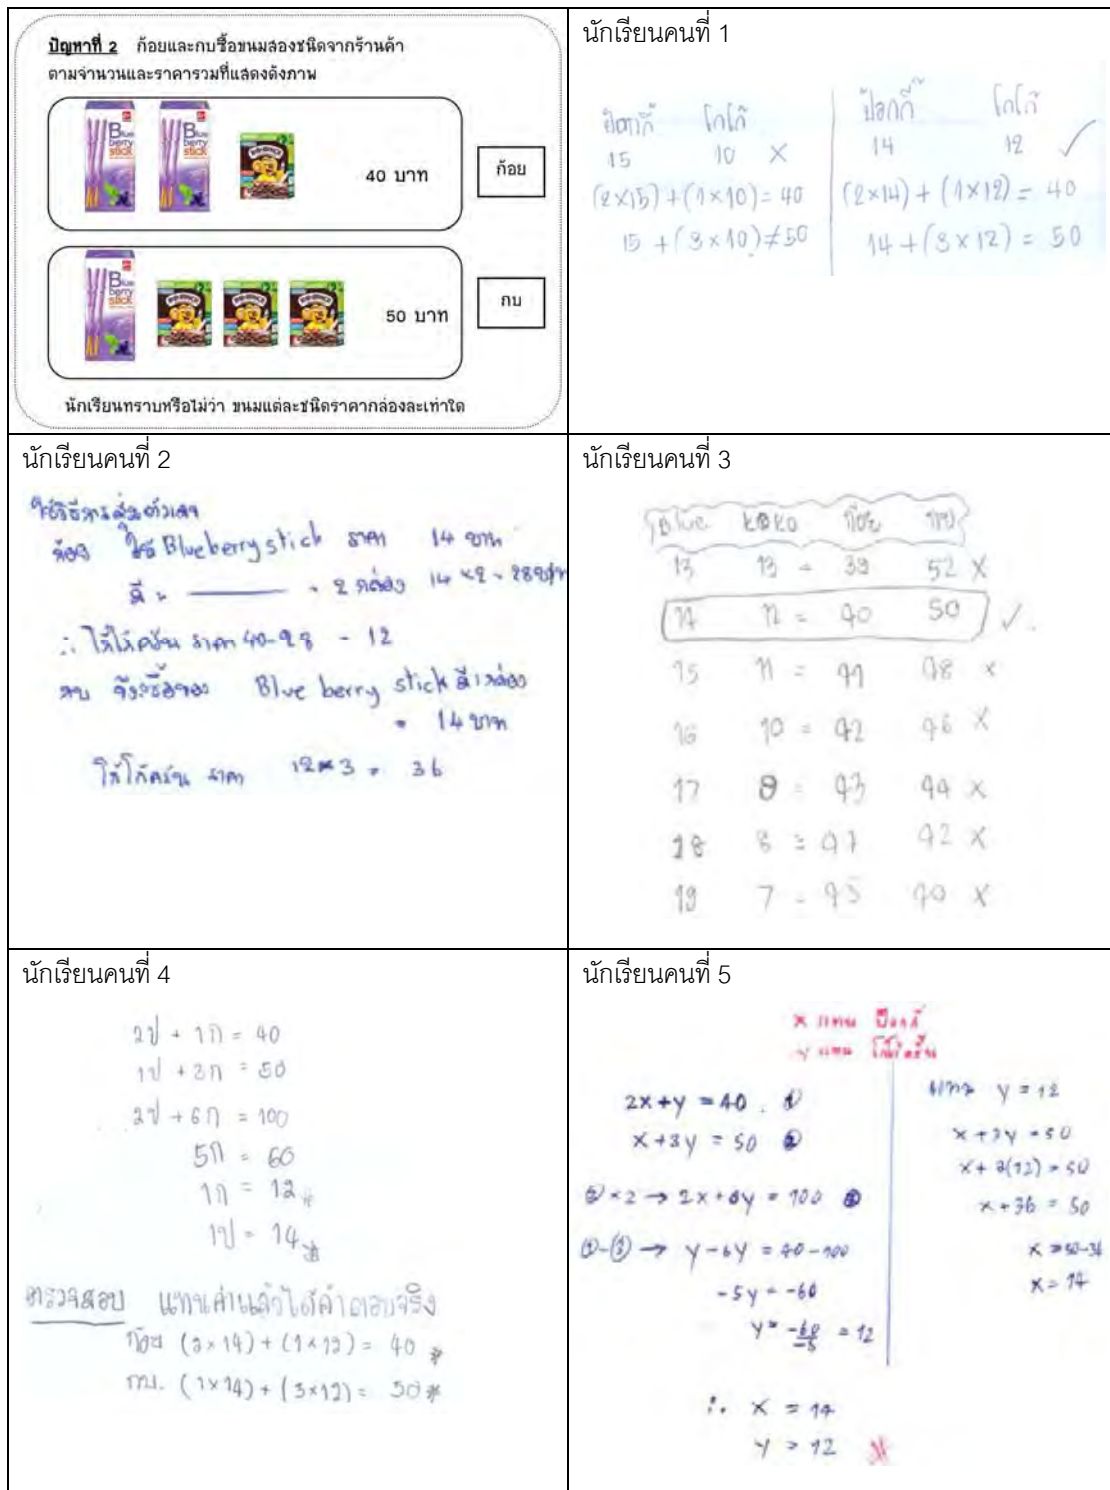 ปัญหาที่ 2 ก้อยและกบซื้อขนมสองชนิดจากร้านค้า
ตามจำนวนและราคารวมที่แสดงดังภาพ
Blue berry stick
Blue berry stick
40 บาท
ก้อย
Blue berry stick
50 บาท
กบ
นักเรียนทราบหรือไม่ว่า ขนมแต่ละชนิดราคากล่องละเท่าใด
นักเรียนคนที่ 1
ป๊อกกี้ โกโก้
15 10 ×
(2×15)+(1×10)=40
15 + (3×10)≠50
ป๊อกกี้ โกโก้
14 12 ✓
(2×14)+(1×12)= 40
14+(3×12) = 50
นักเรียนคนที่ 2
ใช้วิธีการสุ่มตัวเลข
ก้อย ใช้ Blueberry stick ราคา 14 บาท
มี 2 กล่อง 14×2=28บาท
∴ โกโก้ครั้น ราคา 40-28 = 12
กบ จึงซื้อของ Blue berry stick มี 1 กล่อง
= 14 บาท
โกโก้ครั้น ราคา 12×3 = 36
นักเรียนคนที่ 3
Blue koko ก้อย กบ
13 13 = 39 52 ×
14 12 = 40 50 ✓
15 11 = 41 48 ×
16 10 = 42 46 ×
17 9 = 43 44 ×
18 8 = 44 42 ×
19 7 = 45 40 ×
นักเรียนคนที่ 4
2ป + 1ก = 40
1ป + 3ก = 50
2ป + 6ก = 100
5ก = 60
1ก = 12 #
1ป = 14 #
ตรวจสอบ แทนค่าแล้วได้คำตอบจริง
ก้อย (2×14)+(1×12) = 40 #
กบ. (1×14)+(3×12) = 50 #
นักเรียนคนที่ 5
x แทน ป๊อกกี้
y แทน โกโก้ครั้น
2x+y = 40 ①
x+3y = 50 ②
②×2 → 2x+6y = 100 ③
①-③ → y-6y = 40-100
-5y = -60
y = -60/-5 = 12
แทน y = 12
x+3y = 50
x+3(12) = 50
x+36 = 50
x = 50-36
x = 14
∴ x = 14
y = 12 #